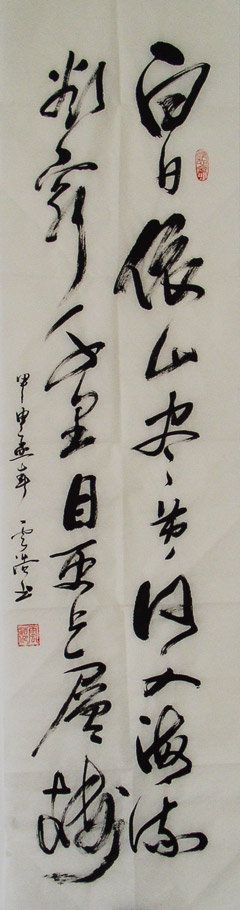 白日依山尽黄河入海流
欲窮千里目更上一層楼
甲申孟春 云浩书